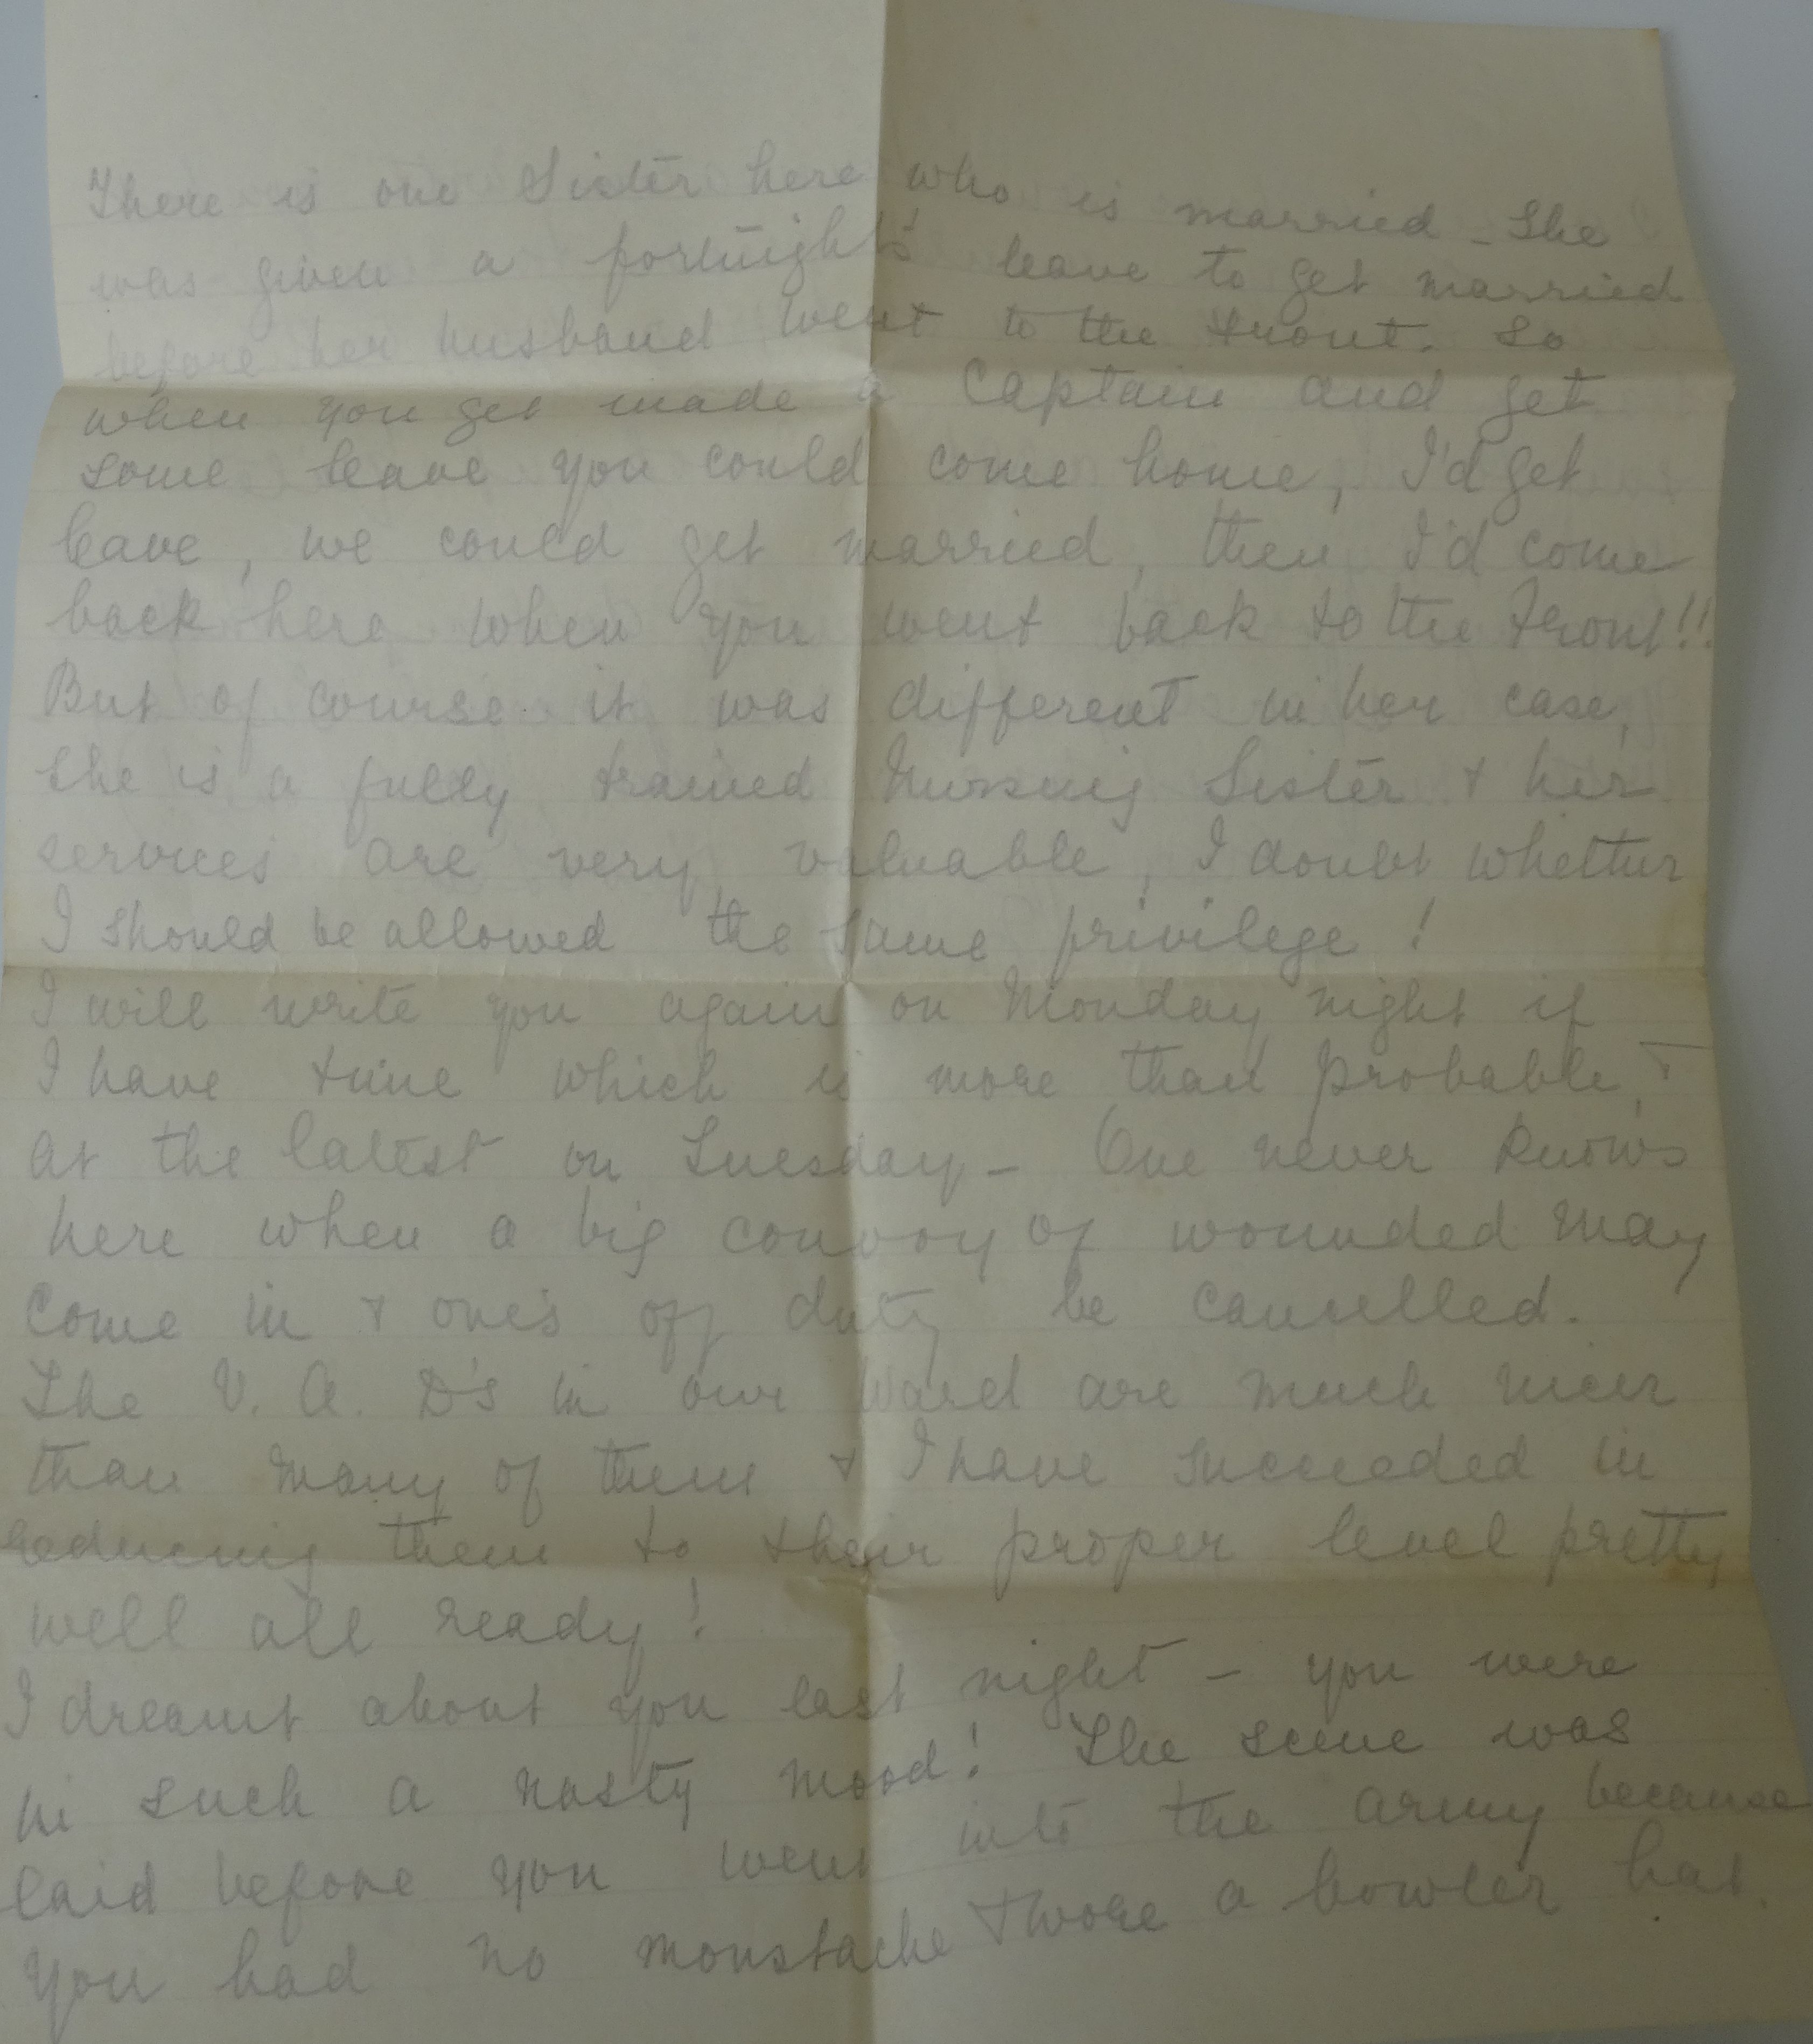 There is one Sister here who is married - She
was given a fortnight's leave to get married
before her husband went to the front. So
when you get made a Captain and get
some leave you could come home, I'd get
leave, we could get married, then I'd come
back here when you went back to the front!!
But of course it was different in her case,
she is a fully trained Nursing Sister & her
services are very valuable, I doubt whether
I should be allowed the same privilege!
I will write you again on Monday night if
I have time which is more than probable, &
at the latest on Tuesday - One never knows
here when a big convoy of wounded may
come in & one's off duty be cancelled.
The V. A. D's in our Ward are much nicer
than many of them & I have succeeded in
reducing them to their proper level pretty
well all ready!
I dreamt about you last night - you were
in such a nasty mood! The scene was
laid before you went into the army because
you had no moustache & wore a bowler hat.